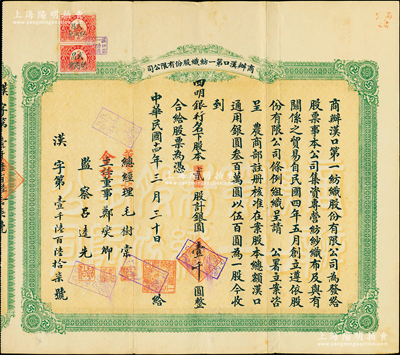 上海陽明拍賣
商辦漢口第一紡織股份有限公司
商辦漢口第一紡織股份有限公司為發給
股票事本公司集資專營紡紗織布及與有
關係之貿易自民國四年五月創立遵依股
份有限公司條例組織呈請 公署立案咨
呈 農商部註冊核准在案股本總額漢口
通用銀圓叁百萬圓以伍百圓為一股今收
到
四明銀行名下股本貳股計銀圓壹千圓整
合給股票為憑
中華民國 年三月三十日 給
總經理 毛樹棠
主任董事 鄭燮卿
監察 呂逵先
漢字第壹千陸百陸拾柒號